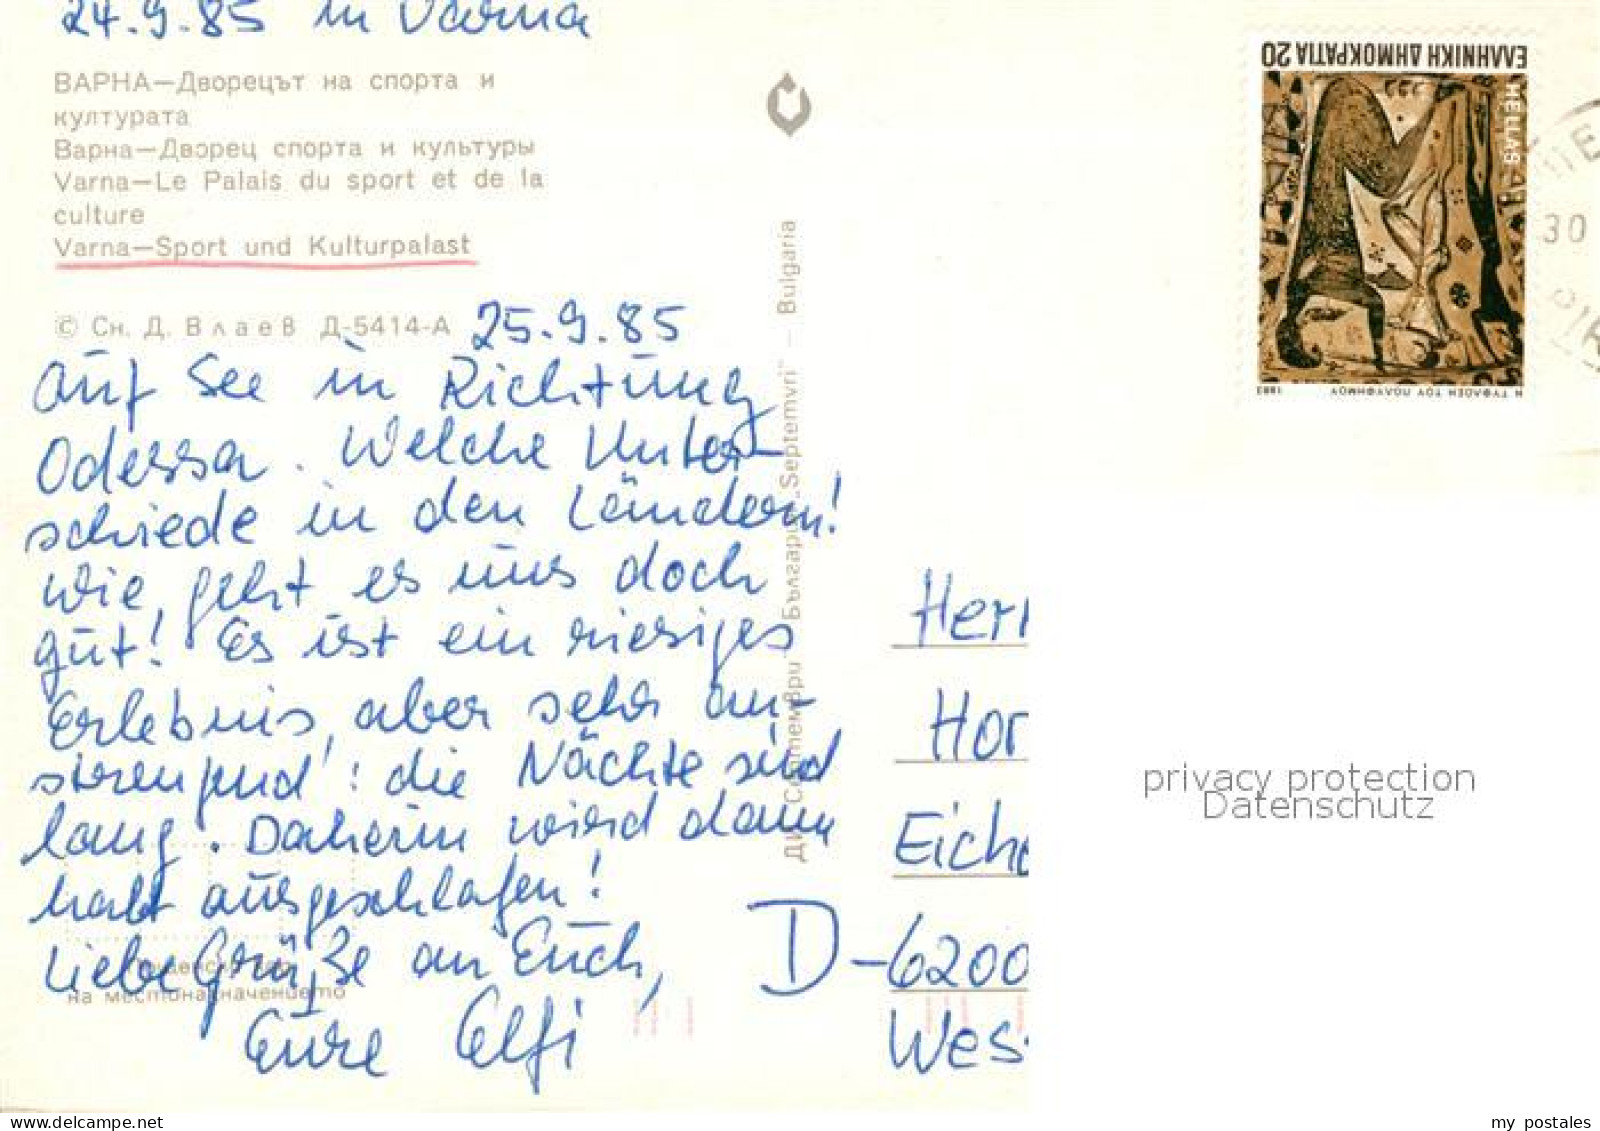 24.9.85 in Varna
ВАРНА—Дворецът на спорта и
културата
Варна—Дворец спорта и культуры
Varna—Le Palais du sport et de la
culture
Varna—Sport und Kulturpalast
© Сн. Д. Влаев Д-5414-А
25.9.85
Auf See in Richtung
Odessa. Welche Unter-
schiede in den Ländern!
Wie geht es uns doch
gut! Es ist ein riesiges
Erlebnis, aber sehr an-
strengend! die Nächte sind
lang. Daheim wird dann
halt ausgeschlafen!
Liebe Grüße an Euch,
Eure Elfi
на местоназначението
ДИ „Септември" България „Septemvri" — Bulgaria
ΕΛΛΗΝΙΚΗ ΔΗΜΟΚΡΑΤΙΑ 20
HELLAS
Η ΤΥΦΛΩΣΗ ΤΟΥ ΠΟΛΥΦΗΜΟΥ 1983
30
Herr
Hor
Eiche
D-6200
Wes
privacy protection
Datenschutz
delcampe.net
my_postales